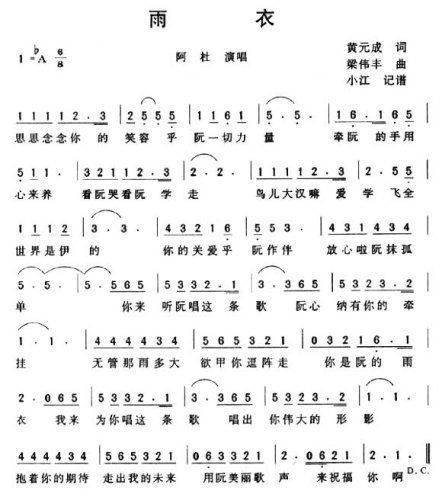 雨 衣
1=♭A 6/8
阿 杜 演唱
黄元成 词
梁伟丰 曲
小江 记谱
1 1 1 1 2 . 3 | 2 5 5 5 | 1 1 6 1 | 5 . 5 . | 1 6 . 1 6 5 |
思思念念你 的 笑容 乎 阮一切力 量 牵阮 的手用
5 1 1 . | 3 2 1 1 2 . 3 | 2 . 2 . | 1 1 1 1 2 . 3 | 2 . 5 5 |
心来养 看阮哭看阮 学 走 鸟儿大汉嘛 爱 学 飞全
1 1 1 2 | 3 . 3 . | 4 3 2 1 6 | 5 2 2 . | 4 3 2 1 3 4 |
世界是伊 的 你的关爱乎 阮作伴 放心啦阮抹孤
5 . 5 . | 5 . 5 6 5 | 5 5 3 2 1 . 2 | 3 . 3 6 5 | 5 5 3 2 3 . 2 |
单 你来 听阮唱这 条 歌 阮心 纳有你的 牵
1 . 1 . | 4 4 4 4 3 4 | 5 6 5 3 2 1 | 0 3 2 1 6 . 1 |
挂 无管那雨多大 欲甲你逗阵走 你是阮的 雨
2 . 0 6 5 | 5 5 3 2 1 . 2 | 3 . 3 5 | 5 5 3 2 3 . 2 | 1 . 1 . |
衣 我来 为你唱这 条 歌 唱出 你伟大的 形影
4 4 4 4 3 4 | 5 6 5 3 2 1 | 0 6 3 3 2 1 | 2 . 0 6 2 1 | 2 . 1 . ‖
D.C.
抱着你的期待 走出我的未来 用阮美丽歌 声 来祝福 你 啊